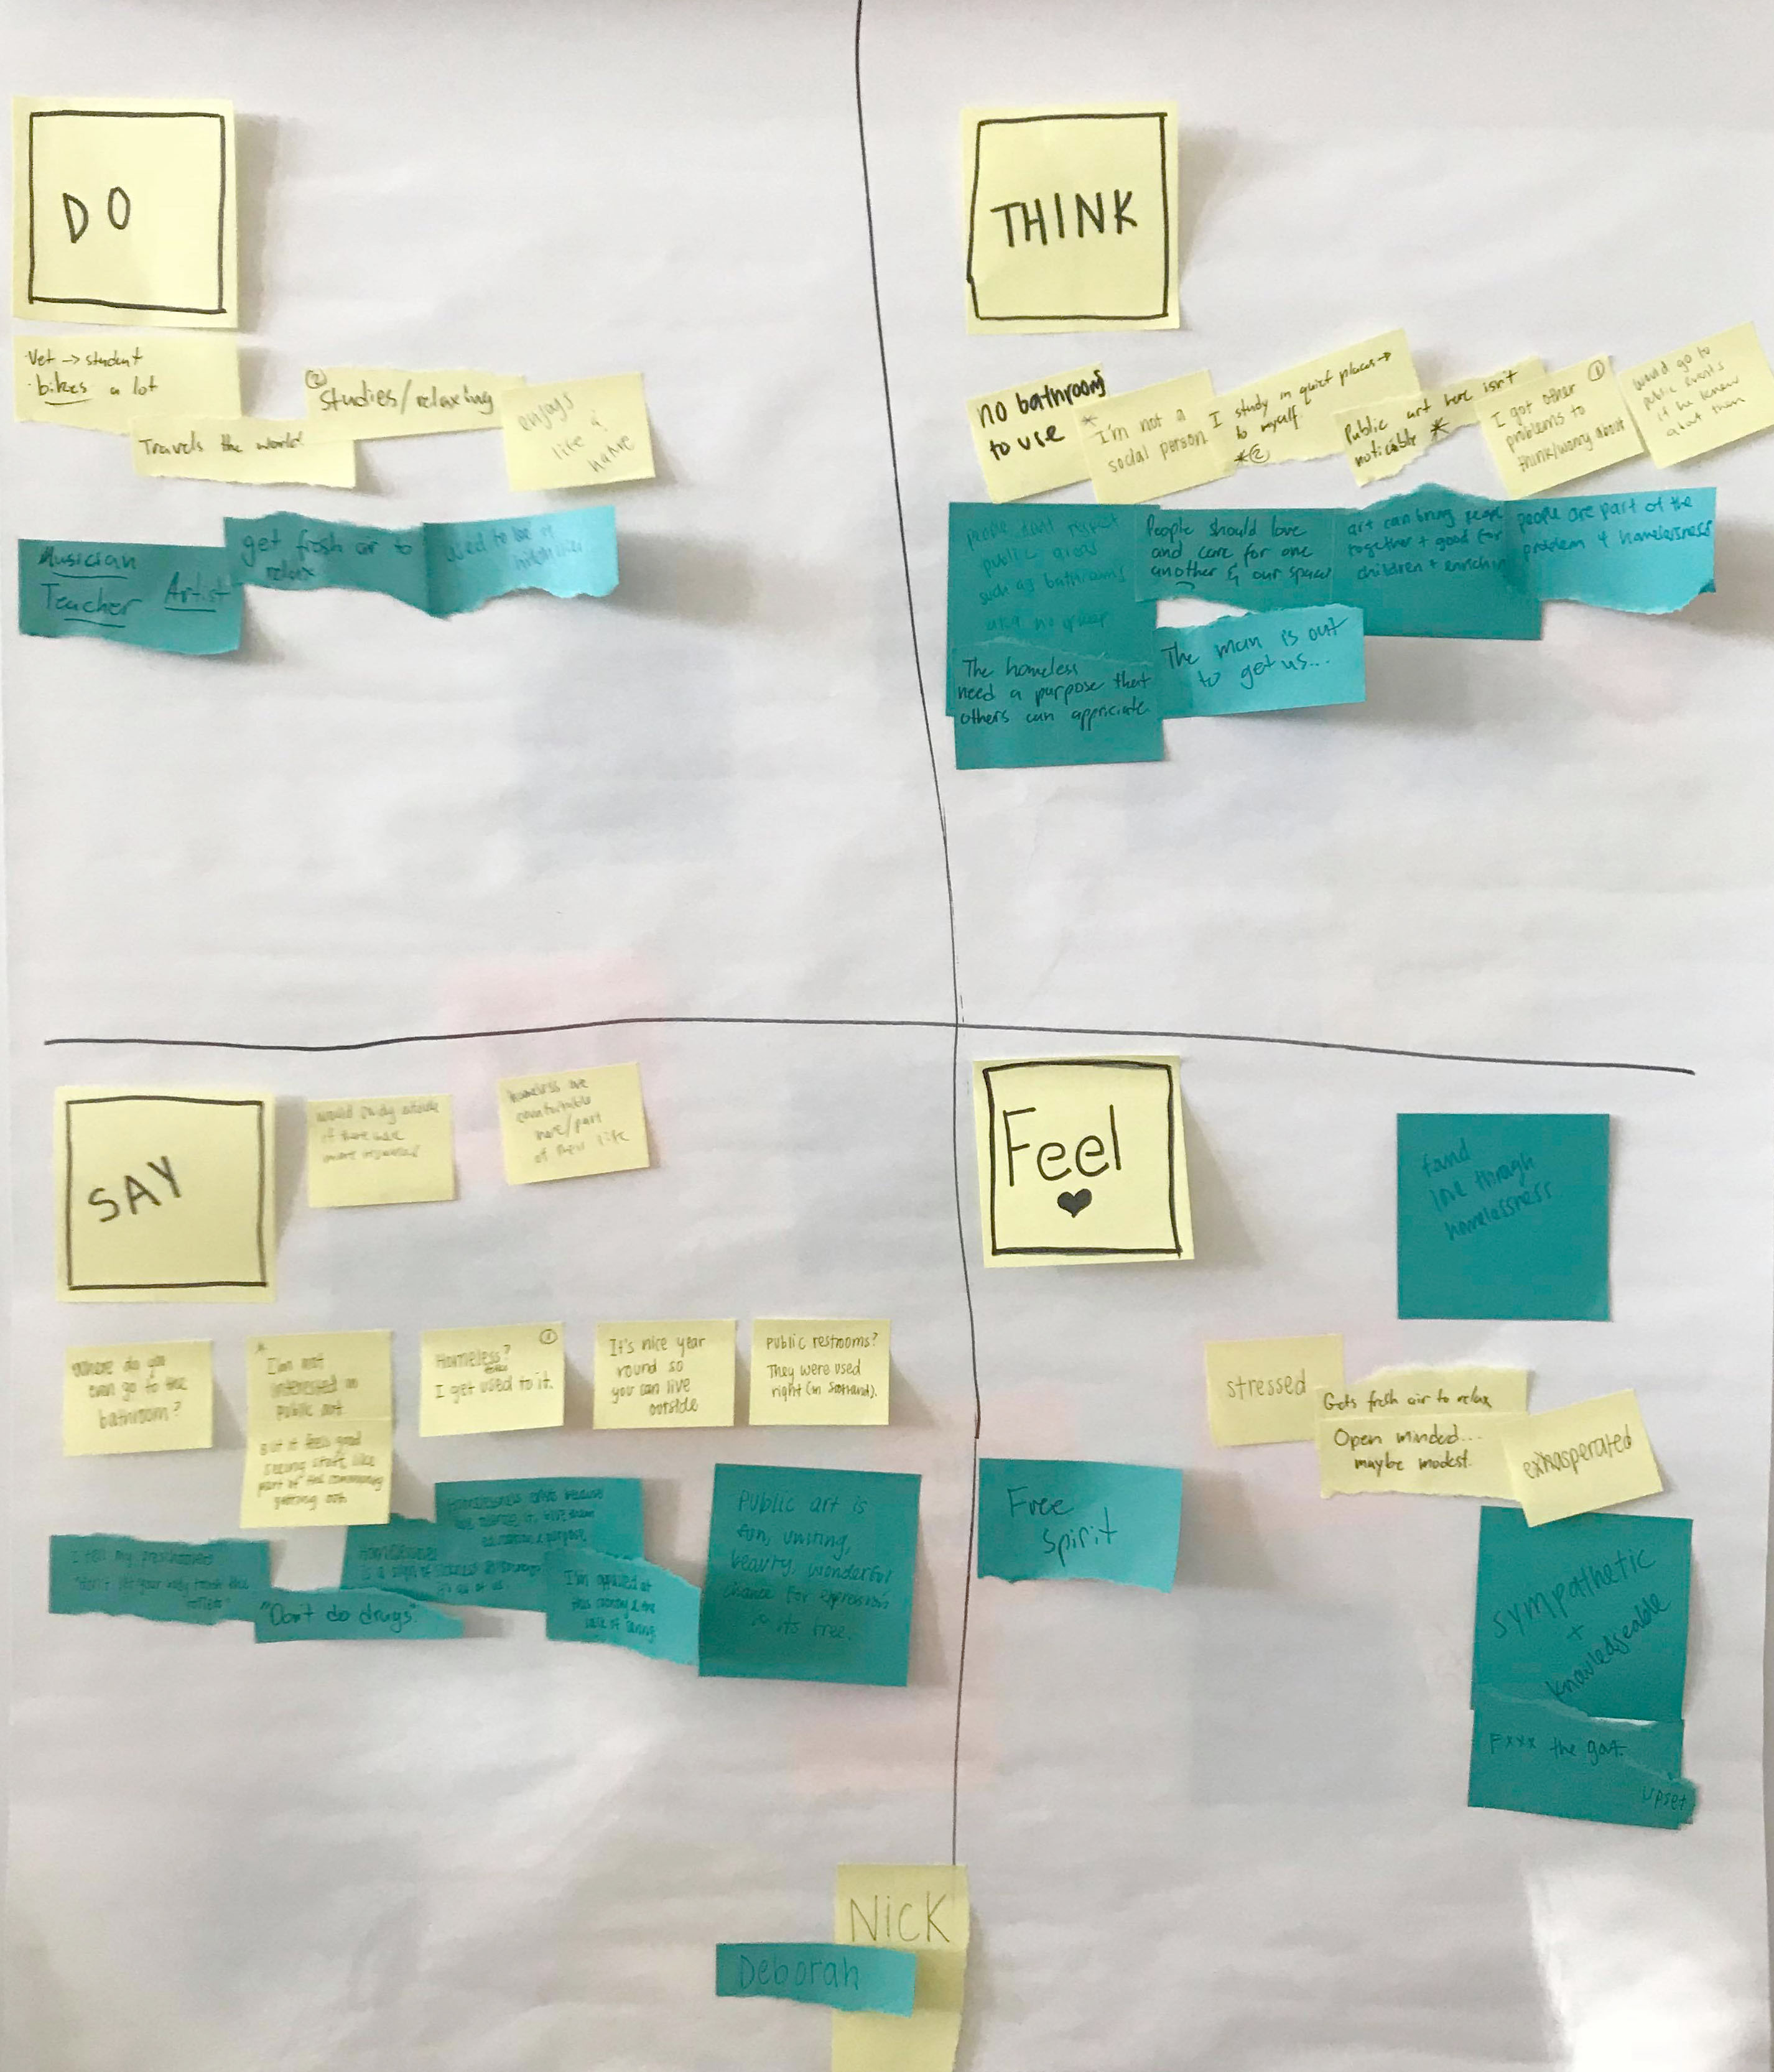 DO
Vet → student
· bikes a lot
②
Studies/relaxing
Travels the world
enjoys
life &
nature
Musician
Teacher Artist
get fresh air to
relax
used to be a
THINK
no bathrooms
to use
*
I'm not a
social person
I study in quiet places→
to myself.
*②
Public art here isn't
noticable *
①
I got other
problems to
think/worry about
would go to
public events
if he knew
about them
people don't respect
public areas
such as bathrooms
People should love
and care for one
another & our space
art can bring people
together + good for
children + enrichin
people are part of the
problem 4 homelessness
The homeless
need a purpose that
others can appriciate
The man is out
to get us...
SAY
would study outside
if there were
more resources
homeless are
comfortable
here/part
of their life
Where do you
even go to the
bathroom?
*
I'm not
interested in
public art
But it feels good
seeing stuff like
part of the community
getting out
①
Homeless?
I get used to it.
It's nice year
round so
you can live
outside
Public restrooms?
They were used
right (in Scotland).
I tell my preschoolers
"Don't do drugs."
Homelessness
I'm appalled at
this country & the
Public art is
fun, uniting,
beauty, wonderful
chance for expression
& its free.
Feel
♥
found
love through
homelessness
stressed
Gets fresh air to relax
Open minded...
maybe modest.
exhasperated
Free
Spirit
sympathetic
+
knowledgeable
Fxxx the gov.
upset
Nick
Deborah